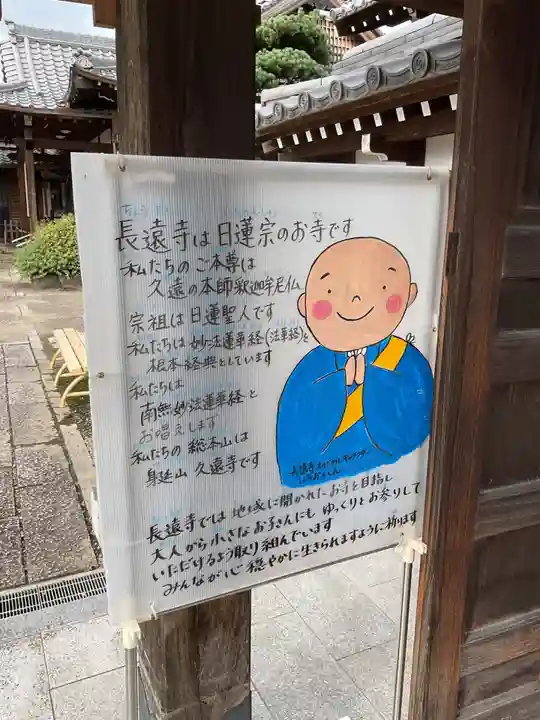 長遠寺は日蓮宗のお寺です
私たちのご本尊は
久遠の本師釈迦牟尼仏
宗祖は日蓮聖人です
私たちは妙法蓮華経(法華経)を
根本経典としています
私たちは
南無妙法蓮華経と
お唱えします
私たちの総本山は
身延山 久遠寺です
長遠寺では地域に開かれたお寺を目指し
大人から小さなお子さんにもゆっくりとお参りして
いただけるよう取り組んでいます
みんなが心穏やかに生きられますように祈ります